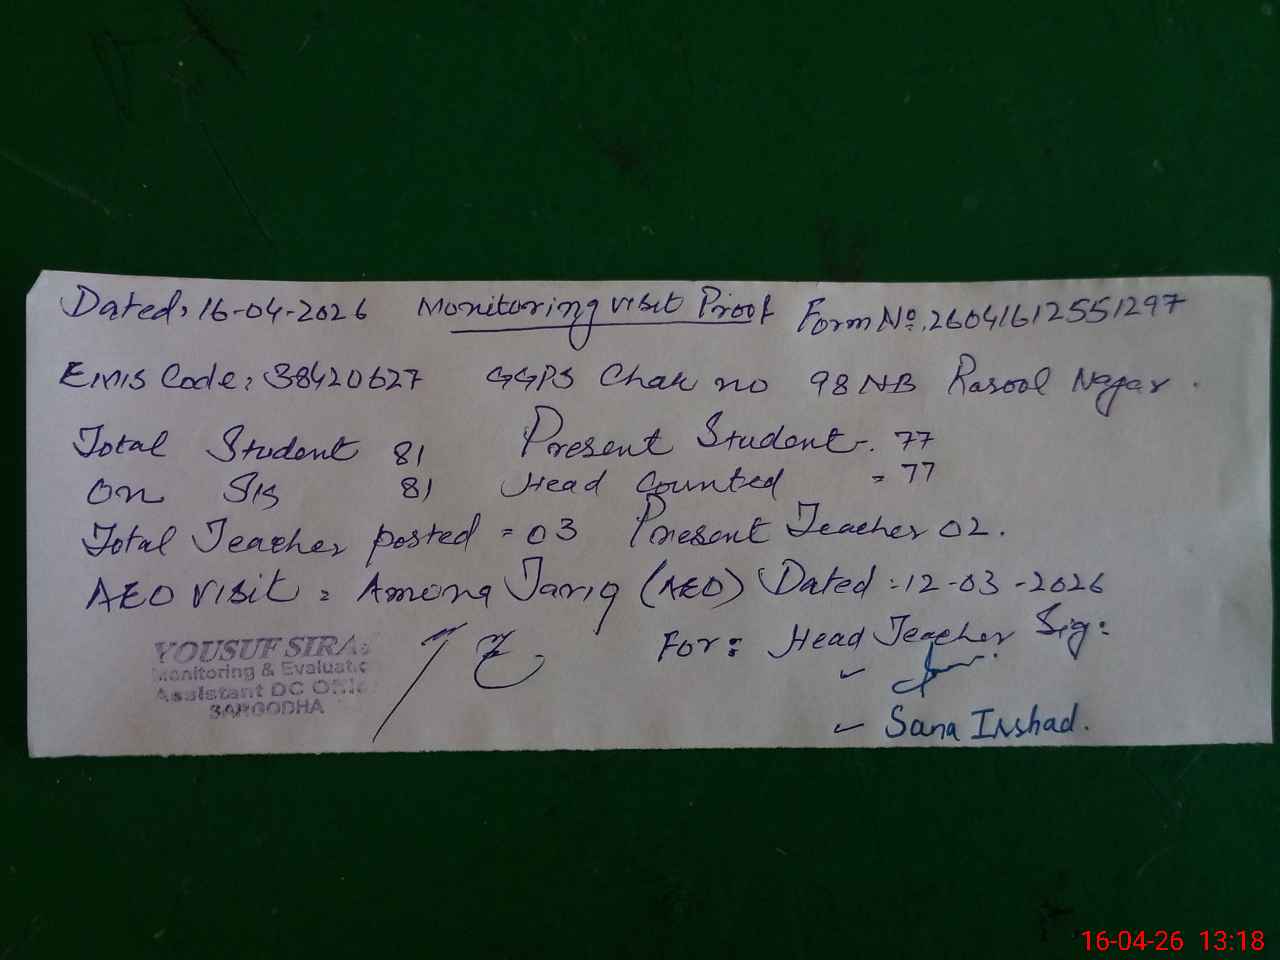 Dated: 16-04-2026 Monitoring visit Proof Form No. 26041612551297
EMIS Code: 38420627 GGPS Chak no 98 NB Rasool Nagar.
Total Student 81 Present Student. 77
on SIS 81 Head Counted = 77
Total Teacher posted = 03 Present Teacher 02.
AEO visit: Amona Tariq (AEO) Dated: 12-03-2026
For: Head Teacher Sig:
YOUSUF SIRAJ
Monitoring & Evaluatio
Assistant DC Office
SARGODHA
Sana Irshad.
16-04-26 13:18